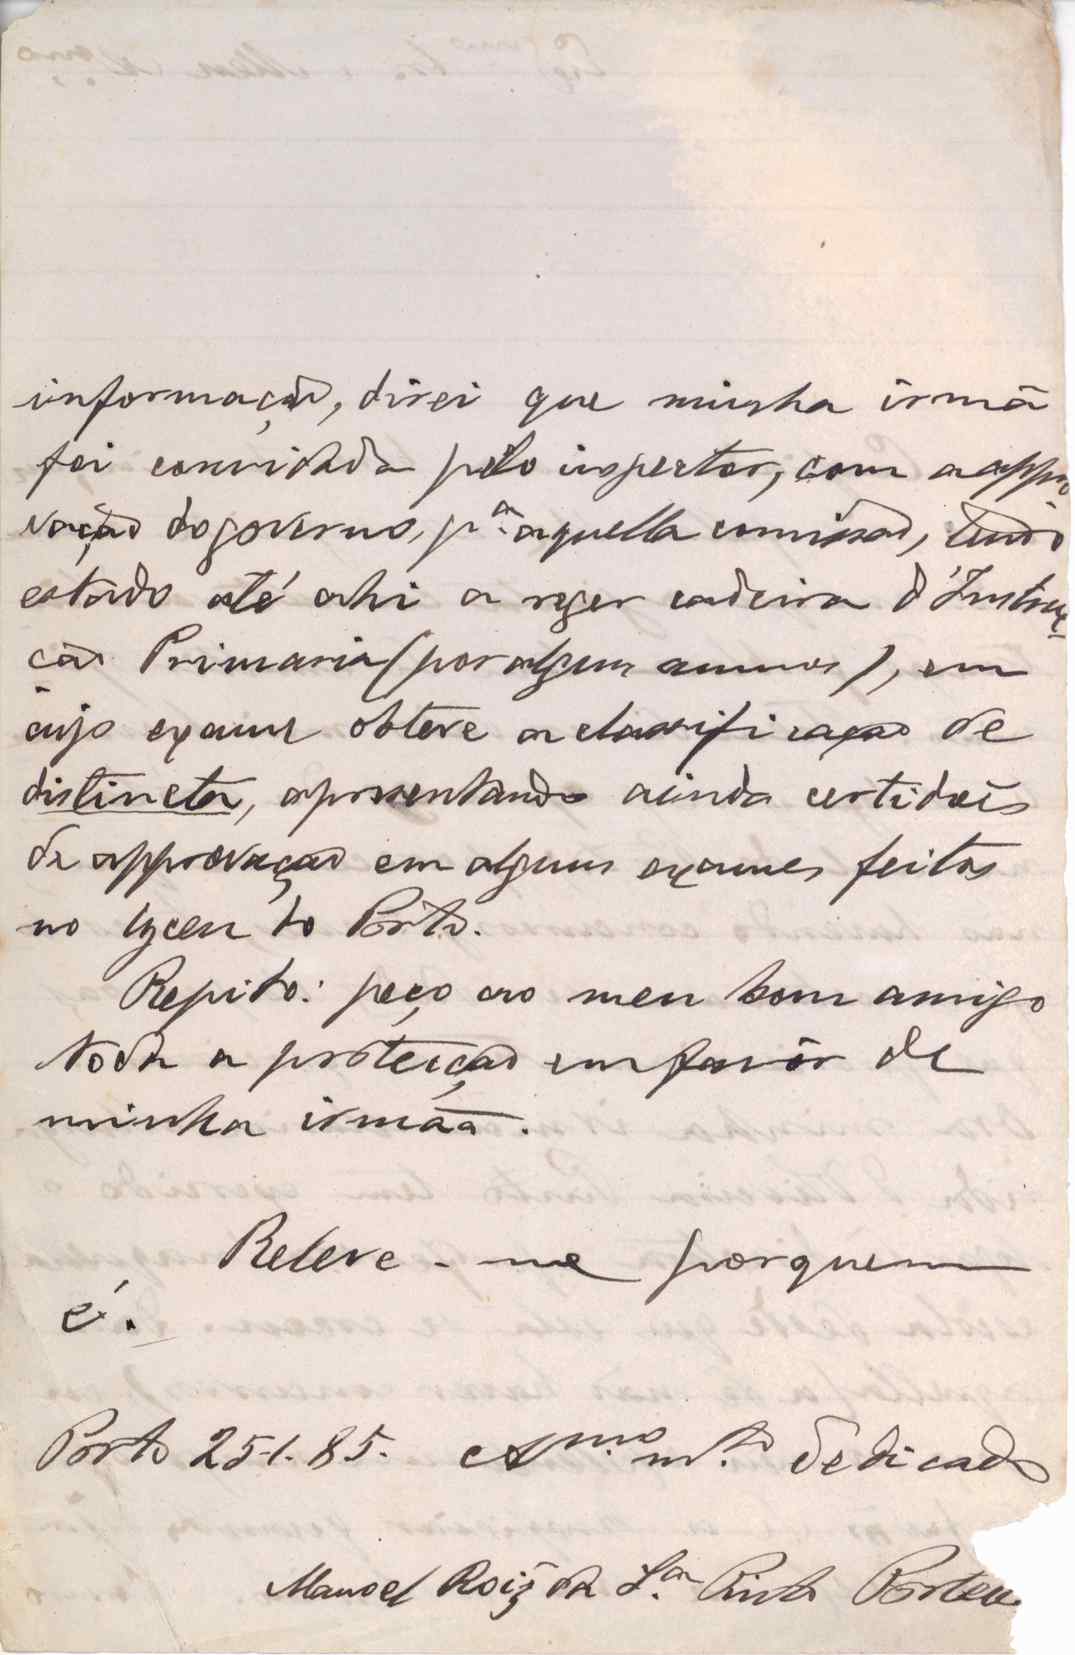 informação, direi que minha irmã
foi convidada pelo inspector, com a appro
vação do governo, pª aquella comissão, tendo
estado até ahi a reger cadeira d'Instruc-
ção Primaria (por alguns annos), em
cujo exame obteve a classificação de
distincta, apresentando ainda certidões
de approvação em alguns exames feitos
no lyceu do Porto.
Repito: peço ao meu bom amigo
toda a proteição em favôr de
minha irmãa.
Releve-me por quem
é.
Porto 25-1.85. Amº mtº dedicado
Manoel Roiz da Sª Pinto